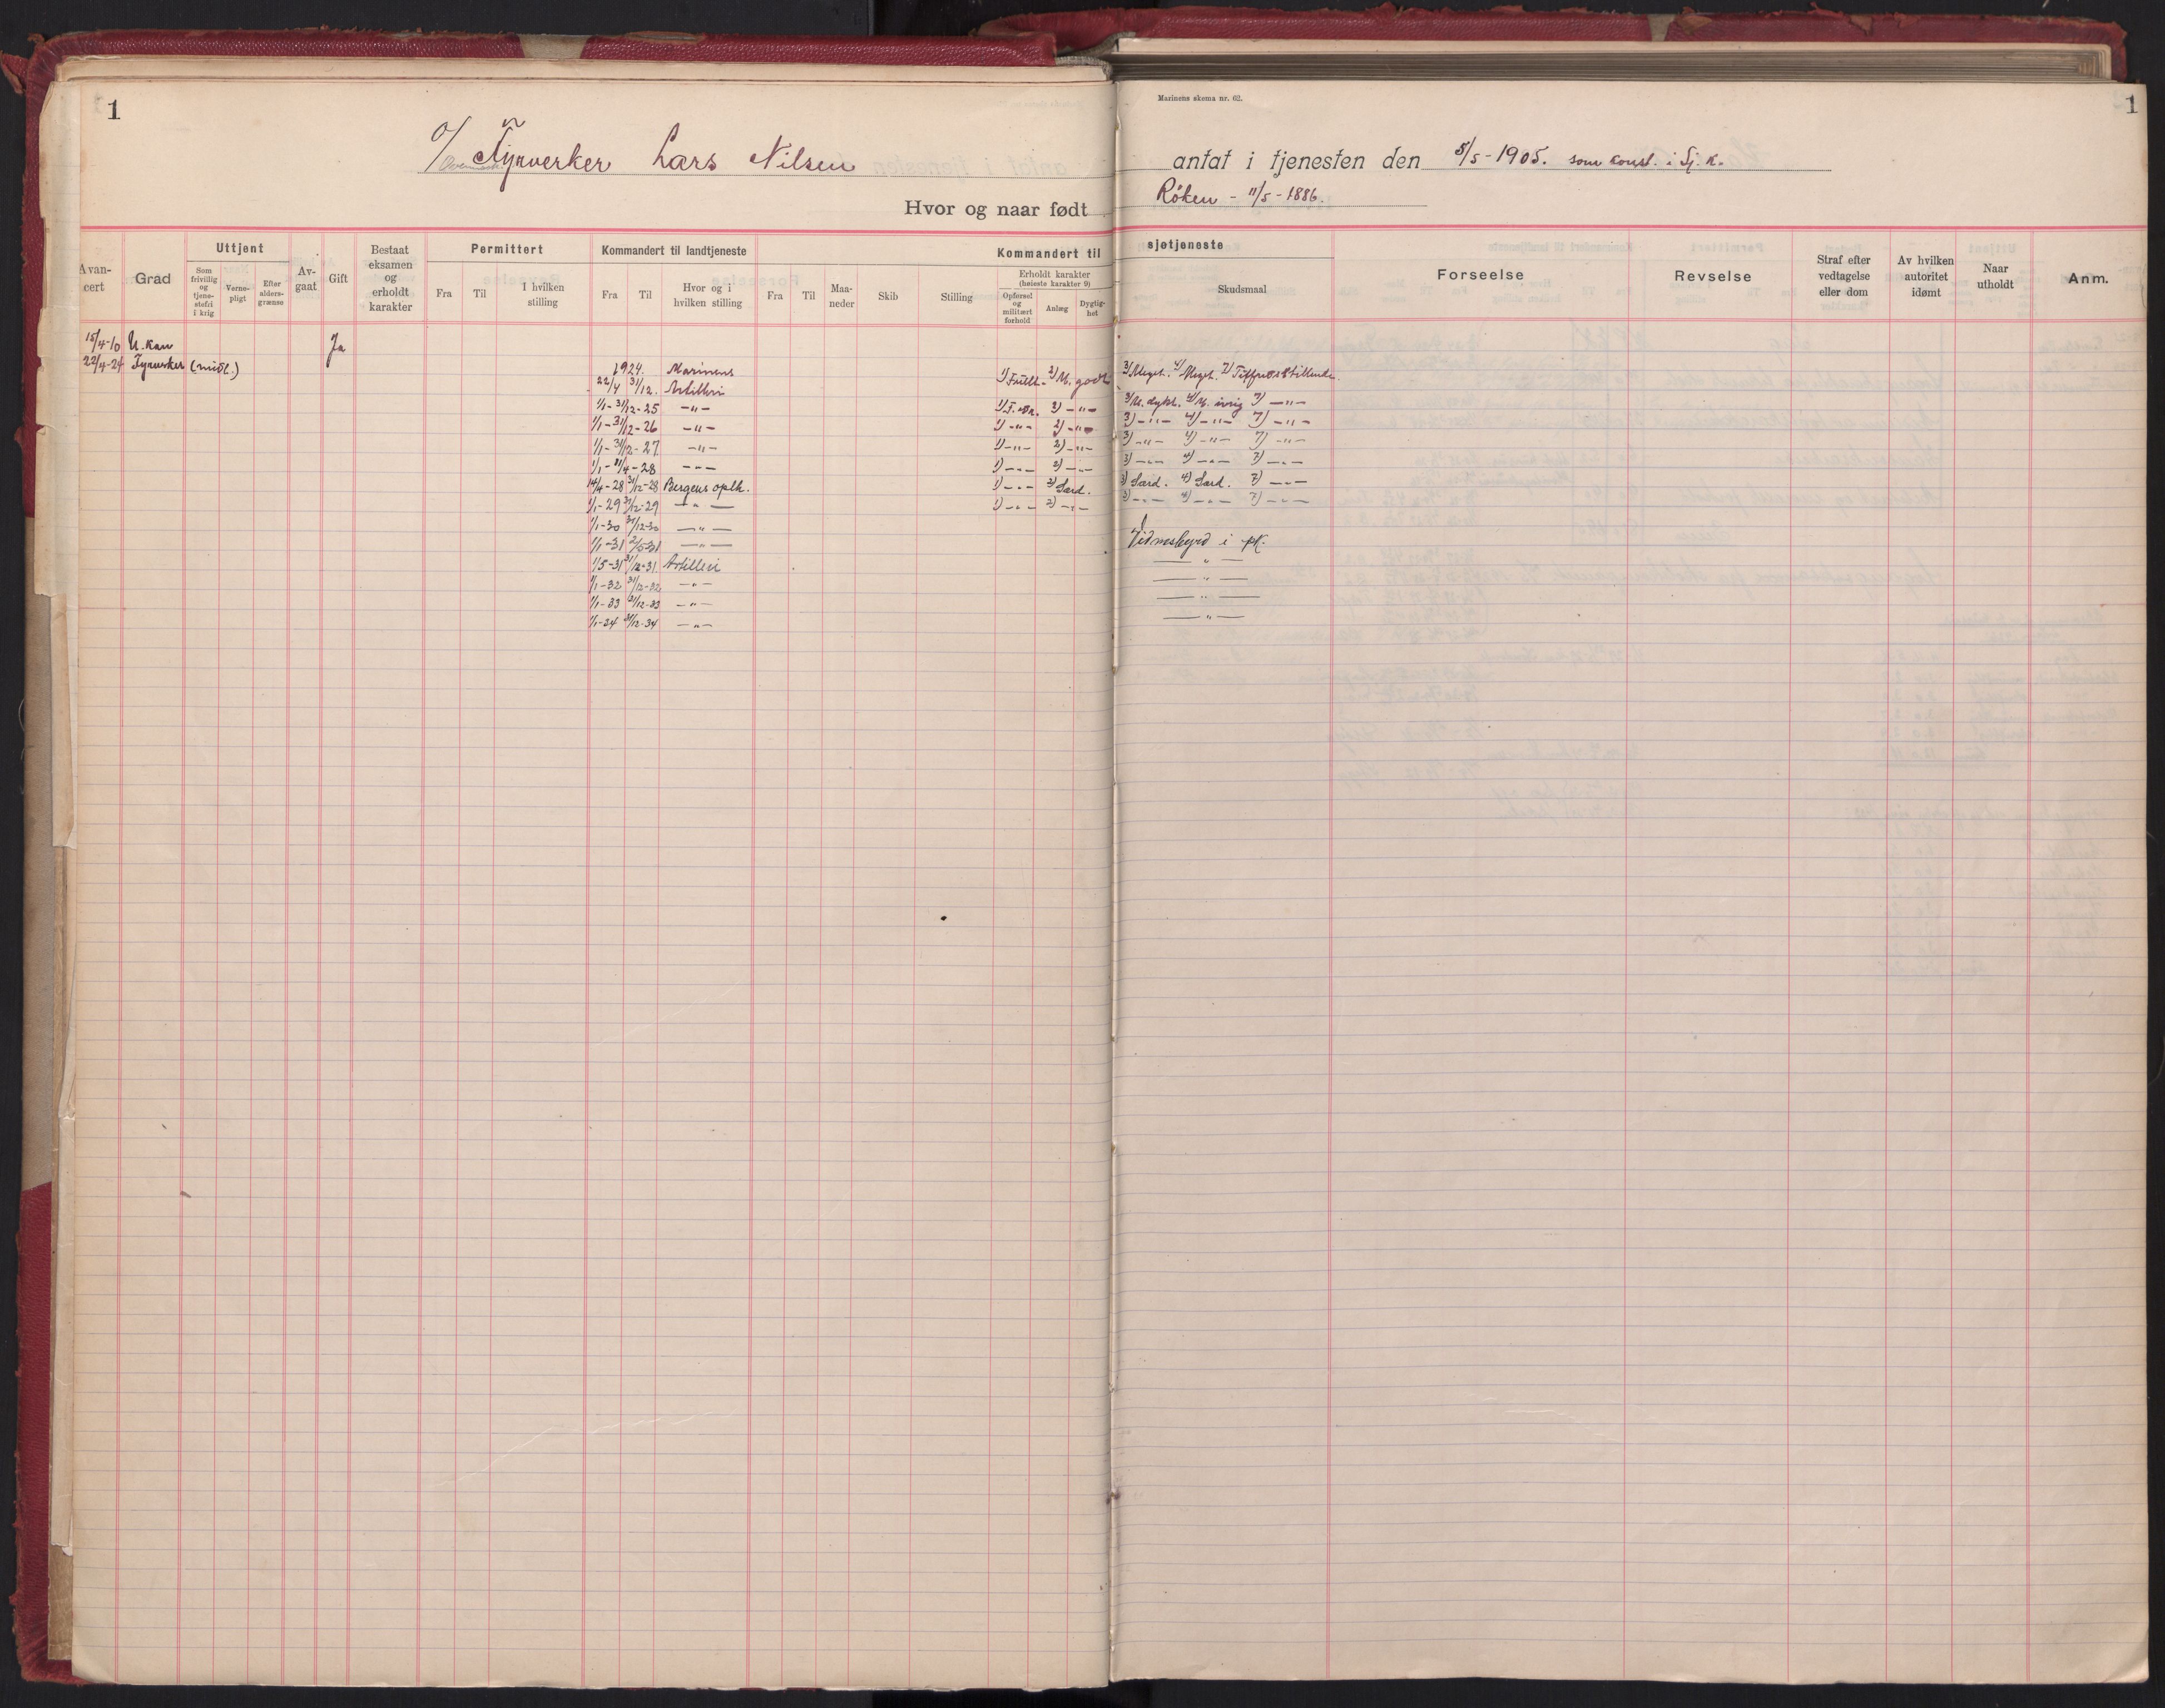 1
Marinens skema nr. 62.
1
O/ Fyrverker Lars Nilsen antat i tjenesten den 5/5-1905. som konst. i Sj. K.
Hvor og naar født Röken - 11/5-1886.
Avancert
Grad
Uttjent
Som frivillig og tjenestefri i krig
Vernepligt
Efter aldersgrænse
Avgaat
Gift
Bestaat eksamen og erholdt karakter
Permittert
Fra
Til
I hvilken stilling
Kommandert til landtjeneste
Fra
Til
Hvor og i hvilken stilling
Kommandert til sjøtjeneste
Fra
Til
Maaneder
Skib
Stilling
Erholdt karakter (høieste karakter 9)
Opførsel og militært forhold
Anlæg
Dygtighet
Skudsmaal
Forseelse
Revselse
Straf efter vedtagelse eller dom
Av hvilken autoritet idømt
Naar utholdt
Anm.
15/4-10 U. kan Ja
22/4-24 Fyrverker (midl.)
1924. Marinens
22/4 31/12. Artilleri 1) 2) M. godt 3) Meget. 4) Meget. 7) Tilfredsstillende
1/1-31/12-25 -"- 1) 2) -"- 3) M. dykt. 4) M. ivrig 7) -"-
1/1-31/12-26 -"- 1) -"- 2) -"- 3) -"- 4) -"- 7) -"-
1/1-31/12-27 -"- 1) -"- 2) -"- 3) -"- 4) -"- 7) -"-
1/1- /4-28 -"- 1) -"- 2) -"- 3) -"- 4) -"- 7) -"-
14/4-28 31/12-28 Bergens oplk. 1) -"- 2) Særd. 3) Særd. 4) Særd. 7) -"-
1/1-29 31/12-29 -"- 1) -"- 2) -"- 3) -"- 4) -"- 7) -"-
1/1-30 31/12-30 -"-
1/1-31 2/5-31 -"- Vidnesbyrd i pk.
1/5-31 31/12-31 Artilleri -"-
1/1-32 31/12-32 -"- -"-
1/1-33 31/12-33 -"- -"-
1/1-34 31/12-34 -"- -"-